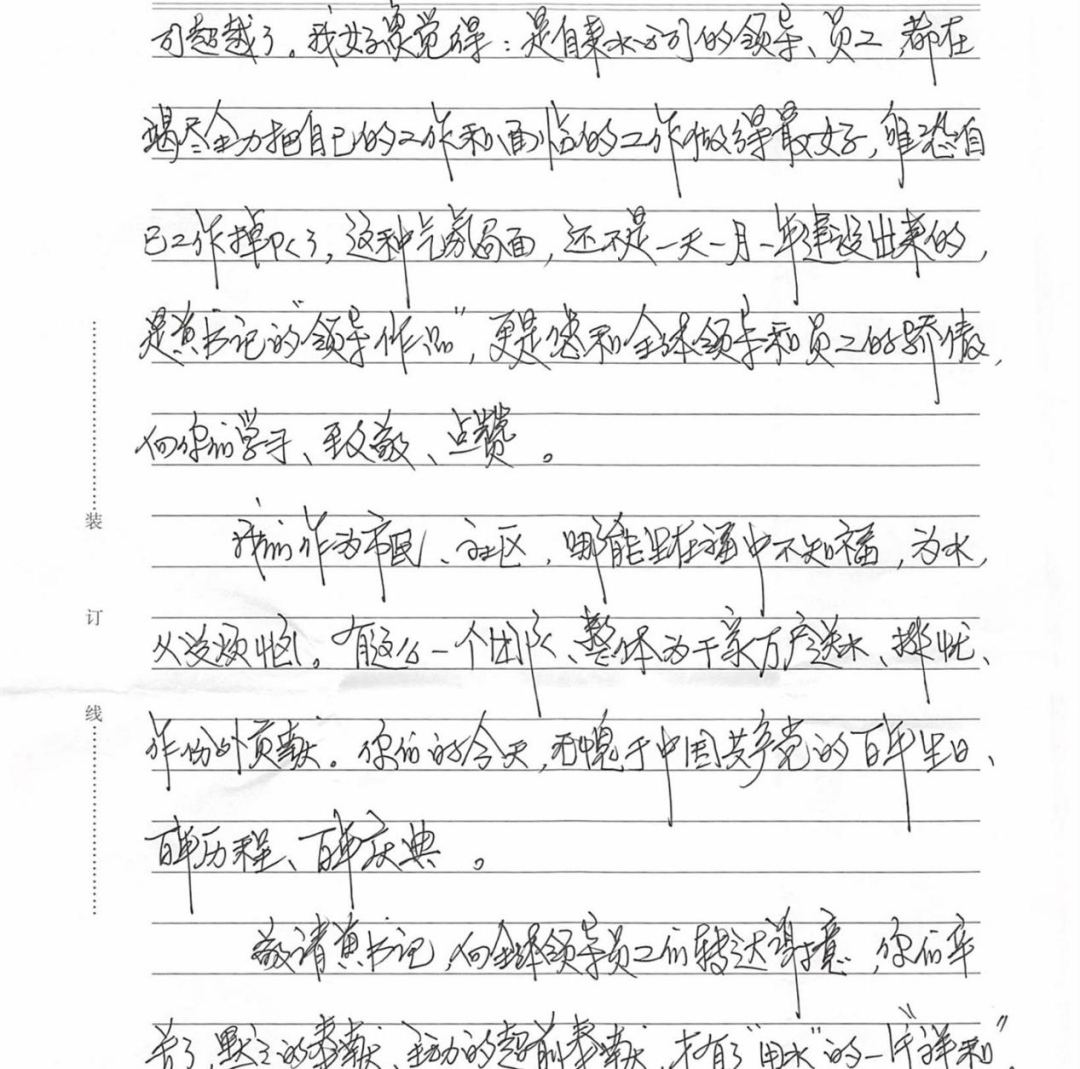 可超越了。我好像觉得：是自来水公司的领导、员工，都在
竭尽全力把自己的工作和面临的工作做得最好，唯恐自
己工作掉队了，这种气氛局面，还不是一天一月一年建设出来的，
是黄书记的“领导作品”，更是您和全体领导和员工的骄傲，
向你们学习、致敬、点赞。
我们作为市民、社区，哪能坐在福中不知福，为水，
从没烦恼。有这么一个团队、整体为千家万户送水、排忧、
作份外贡献。你们的今天，无愧于中国共产党的百年生日、
百年历程、百年庆典。
敬请黄书记，向全体领导员工们转达谢意，你们辛
苦了，默默的奉献、主动的超前奉献，才有了“用水”的一片“祥和”。
装
订
线